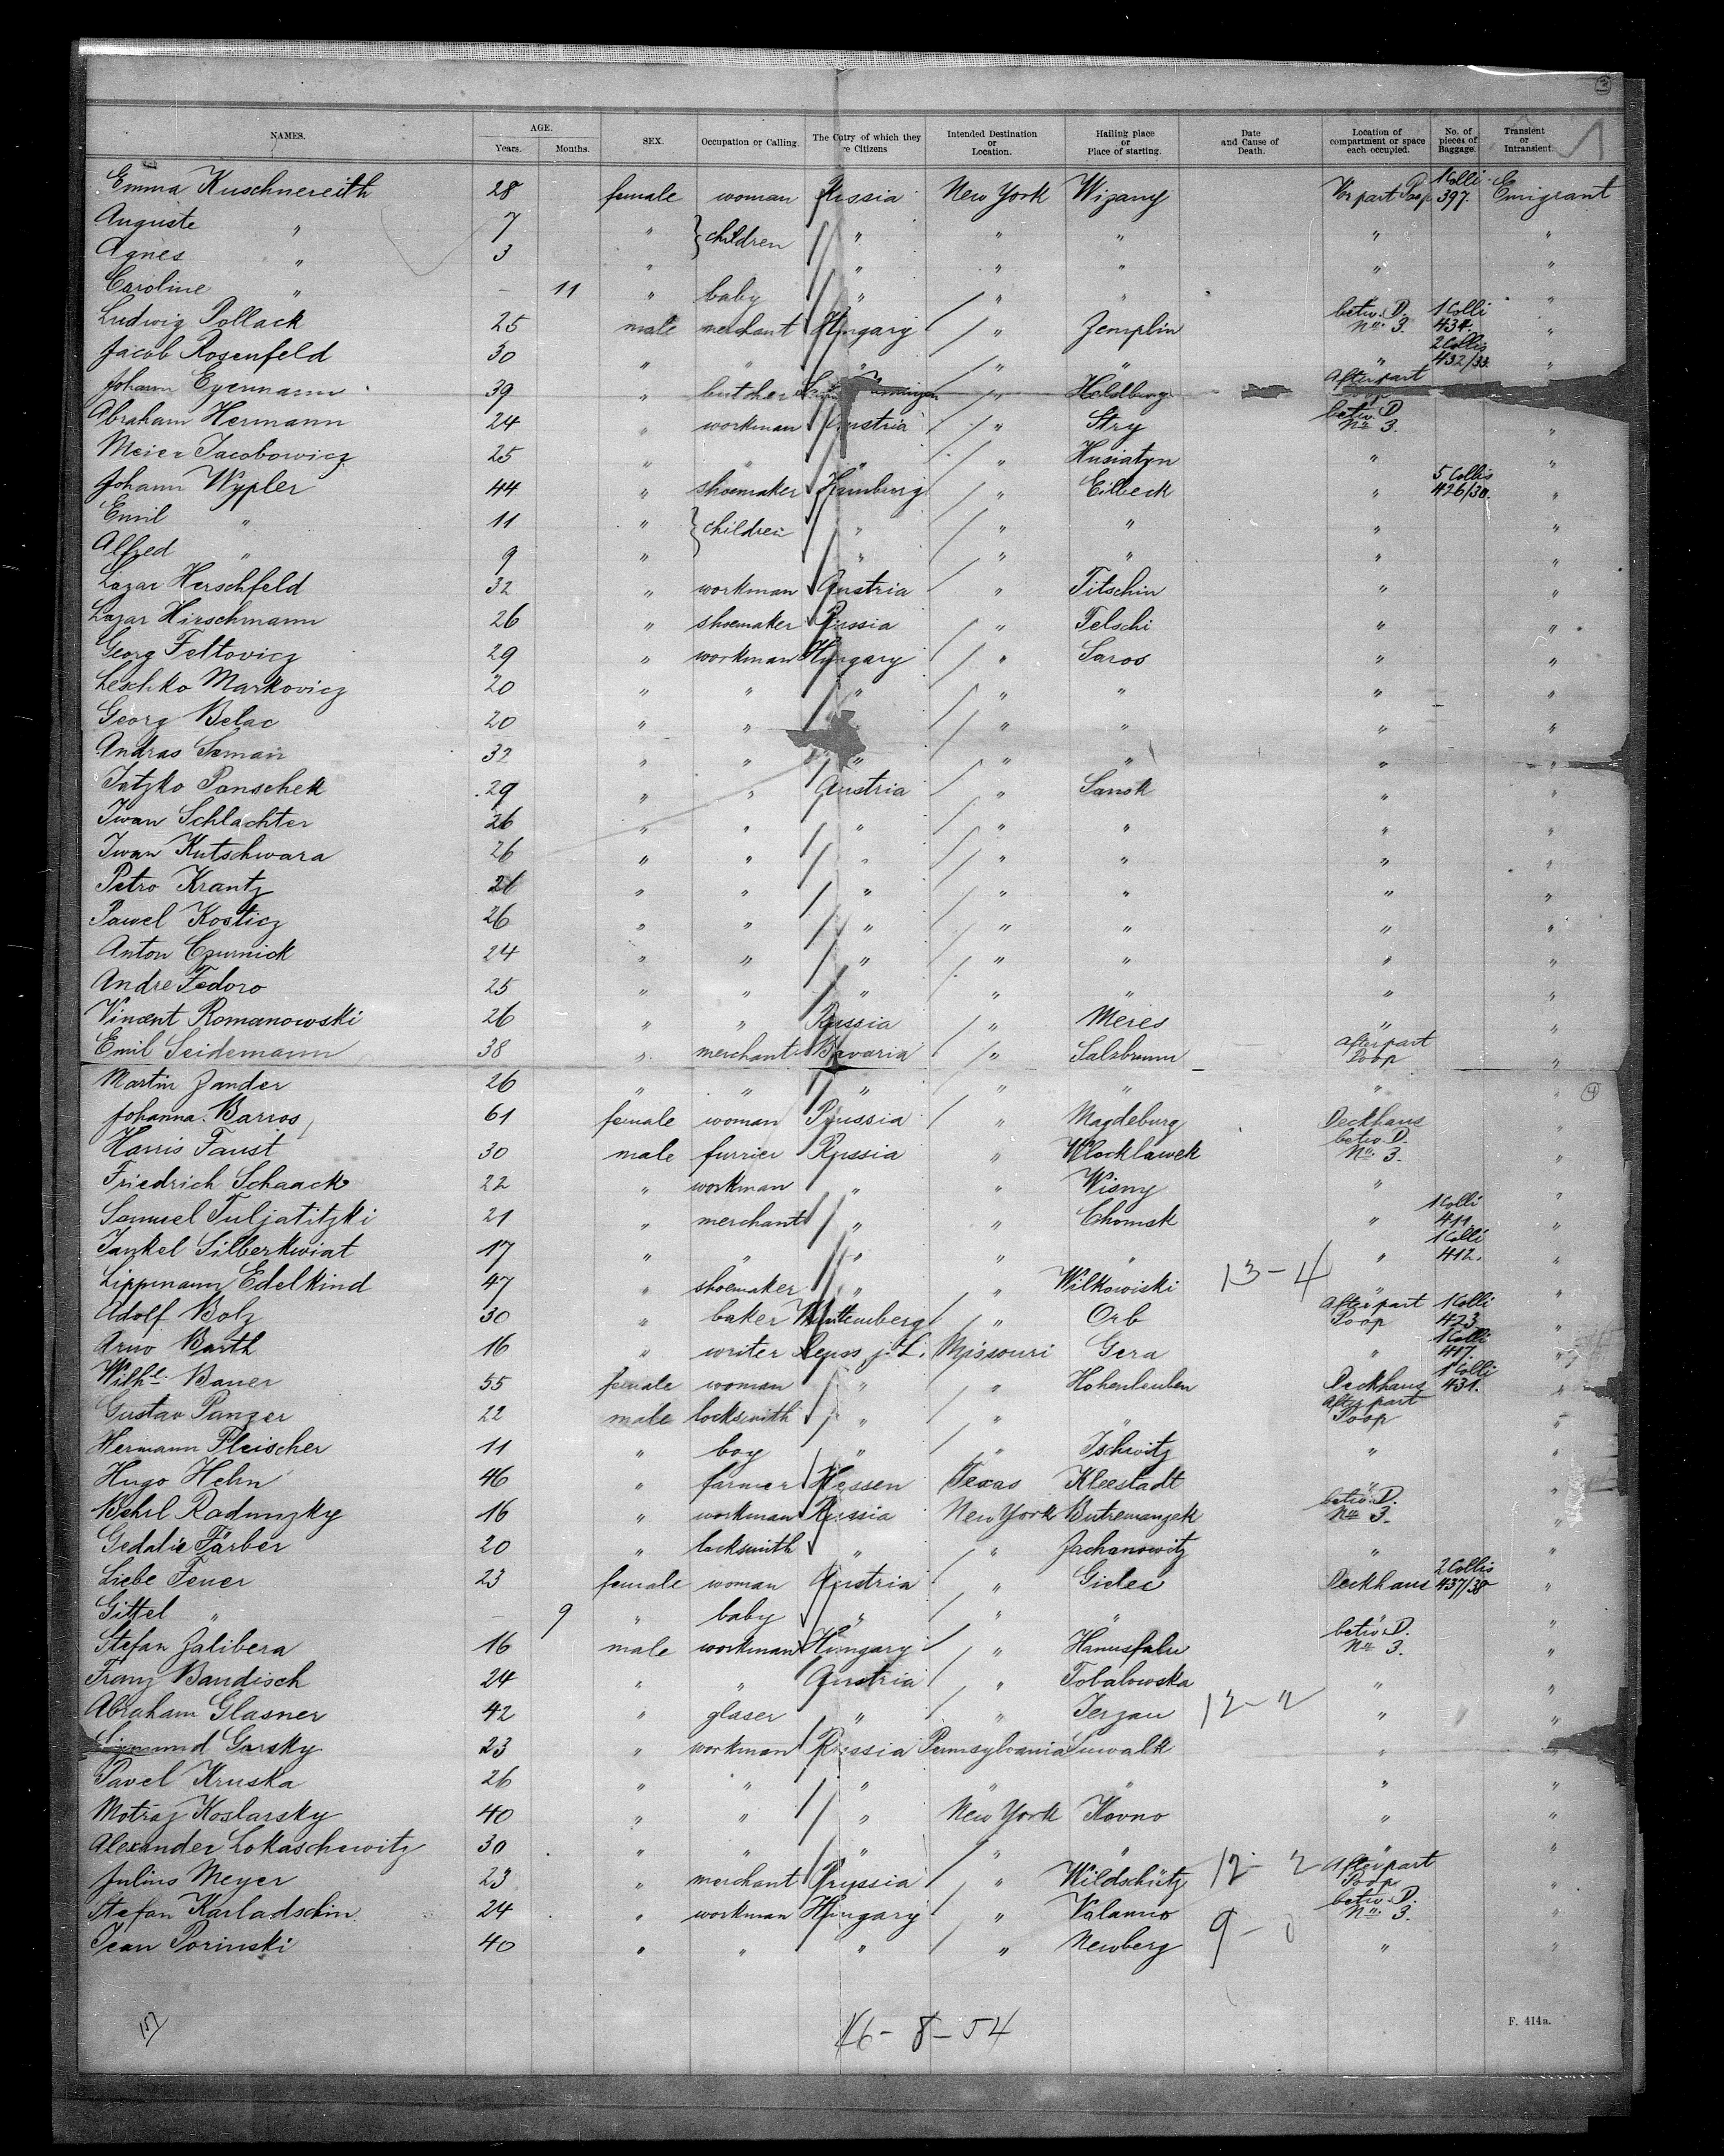 NAMES. AGE. Years. Months. SEX. Occupation or Calling. The Cntry of which they re Citizens Intended Destination or Location. Hailing place or Place of starting. Date and Cause of Death. Location of compartment or space each occupied. No. of pieces of Baggage. Transient or Intransient.
Emma Kuschnereith 28 female woman Russia New York Wizany Vor part Poop 1 Colli 397. Emigrant
Auguste " 7 " } children " " " " "
Agnes " 3 " " " " " "
Caroline " – 11 " baby " " " " "
Ludwig Pollack 25 male merchant Hungary " Zemplin betw. D. No. 3. 1 Colli 434. "
Jacob Rosenfeld 30 " " " " " " 2 Collis 432/33. "
Johann Eyermann 39 " butcher " Heldburg Afterpart
Abraham Hermann 24 " workman Austria " Stry betw. D. No 3. "
Meier Jacobowicz 25 " " " " Husiatyn " "
Johann Wypler 44 " shoemaker Hamburg " Eilbeck " 5 Collis 426/30. "
Emil " 11 " } children " " " " "
Alfred " 9 " " " " " "
Lazar Herschfeld 32 " workman Austria " Titschin " "
Lazar Hirschmann 26 " shoemaker Russia " Telschi " "
Georg Feltovicz 29 " workman Hungary " Saros " "
Leschko Markovicz 20 " " " " " " "
Georg Belac 20 " " " " " "
Andras Seman 32 " " " " " " "
Jatzko Panschek 29 " " Austria " Sanok " "
Iwan Schlachter 26 " " " " " " "
Iwan Kutschwara 26 " " " " " " "
Petro Krantz 26 " " " " " " "
Pawel Kosticz 26 " " " " " " "
Anton Czurnick 24 " " " " " " "
Andre Fedoro 25 " " " " " " "
Vincent Romanowski 26 " " Russia " Meres " "
Emil Seidemann 38 " merchant Bavaria " Salzbrunn Afterpart Poop "
Martin Zander 26 " " " " " " "
Johanna Barros 61 female woman Prussia " Magdeburg Deckhaus "
Harris Faust 30 male furrier Russia " Wlocklawek betw. D. No. 3. "
Friedrich Schaack 22 " workman " " Wisny " "
Samuel Tuljatitzki 21 " merchant " " Chomsk " 1 Colli 411. "
Jankel Silberkwiat 17 " " " " " " 1 Colli 412. "
Lippmann Edelkind 47 " shoemaker " " Wilkowiski 13-4 " "
Adolf Bolz 30 " baker Württemberg " Orb Afterpart Poop 1 Colli 423 "
Arno Barth 16 " writer Reuss j. L. Missouri Gera " 1 Colli 417. "
Wilhe. Bauer 55 female woman " " Hohenleuben Deckhaus 1 Colli 431. "
Gustav Panzer 22 male locksmith " " " Afterpart Poop "
Hermann Fleischer 11 " boy " " Ischwitz " "
Hugo Hehn 46 " farmer Hessen Texas Kleestadt " "
Behrl Radunzky 16 " workman Russia New York Butremanzek betw. D. No 3. "
Gedalie Färber 20 " locksmith " " Jachanowitz " "
Liebe Feuer 23 female woman Austria " Gidec Deckhaus 2 Collis 437/38 "
Gittel " – 9 " baby " " " " "
Stefan Zalibera 16 male workman Hungary " Hanusfalu betw. D. No 3. "
Franz Bandisch 24 " " Austria " Tobalowska " "
Abraham Glasner 42 " glaser " " Jerzau 12-2 " "
Sigmund Garsky 23 " workman Russia Pennsylvania Suwalk " "
Pavel Kruska 26 " " " " " " "
Motraj Koslarsky 40 " " " New York Kovno " "
Alexander Lokaschewitz 30 " " " " " " "
Julius Meyer 23 " merchant Prussia " Wildschütz 12-2 Afterpart Poop "
Stefan Karladschin 24 " workman Hungary " Valanno betw. D. No. 3. "
Jean Porinski 40 " " " " Newberg 9-0 " "
46-8-54
F. 414a.